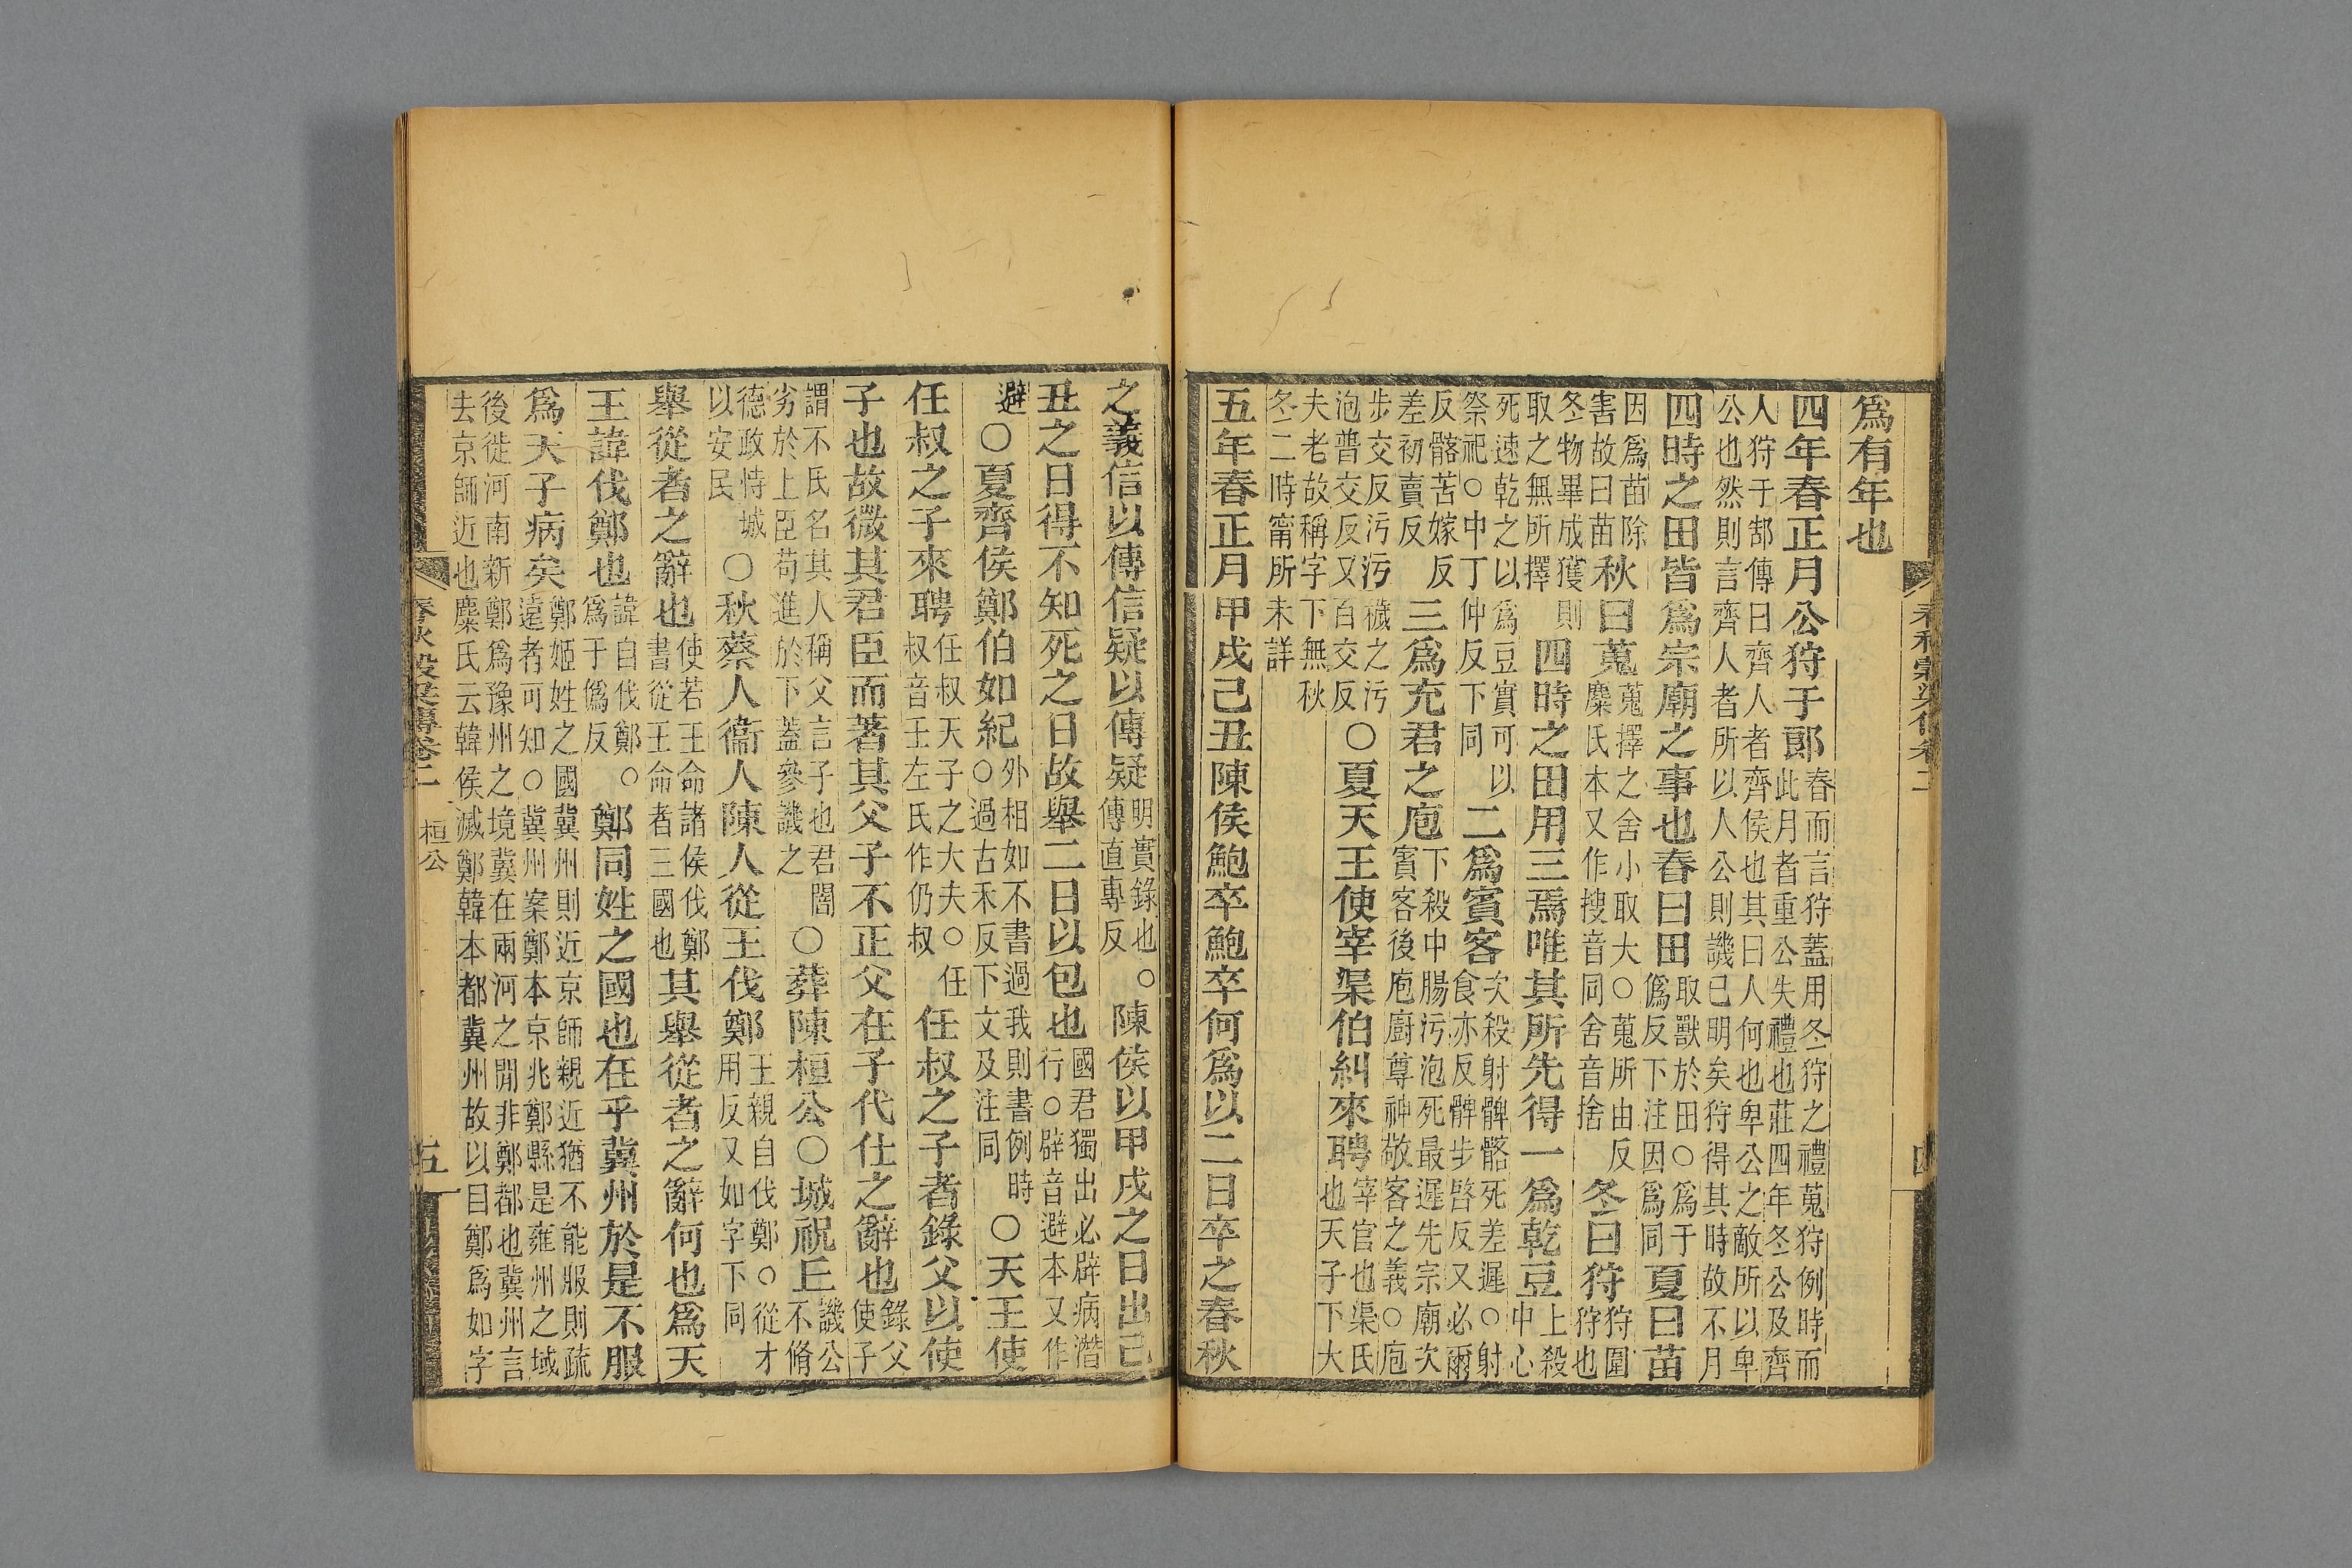 爲有年也
四年春正月公狩于郎春而言狩蓋用冬狩之禮蒐狩例時而此月者重公失禮也莊四年冬公及齊
人狩于郜傳曰齊人者齊侯也其曰人何也卑公之敵所以卑公也然則言齊人者所以人公則譏已明矣狩得其時故不月
四時之田皆爲宗廟之事也春曰田取獸於田○爲于僞反下注因爲同夏曰苗
因爲苗除害故曰苗秋曰蒐蒐擇之舍小取大○蒐所由反麋氏本又作搜音同舍音捨冬曰狩狩圍狩也
冬物畢成獲則取之無所擇四時之田用三焉唯其所先得一爲乾豆上殺中心
死速乾之以爲豆實可以祭祀○中丁仲反下同二爲賓客次殺射髀髂死差遲○射食亦反髀步啓反又必爾
反髂苦嫁反差初賣反三爲充君之庖下殺中腸污泡死最遲先宗廟次賓客後庖廚尊神敬客之義○庖
步交反污污穢之污泡普交反又百交反○夏天王使宰渠伯糾來聘宰官也渠氏也天子下大
夫老故稱字下無秋冬二時甯所未詳
五年春正月甲戌己丑陳侯鮑卒鮑卒何爲以二日卒之春秋
春秋穀梁傳卷二
四
之義信以傳信疑以傳疑明實錄也○傳直專反陳侯以甲戌之日出己
丑之日得不知死之日故舉二日以包也國君獨出必辟病潛行○辟音避本又作
避○夏齊侯鄭伯如紀外相如不書過我則書例時○過古禾反下文及注同○天王使
任叔之子來聘任叔天子之大夫○任叔音壬左氏作仍叔任叔之子者錄父以使
子也故微其君臣而著其父子不正父在子代仕之辭也錄父使子
謂不氏名其人稱父言子也君闇劣於上臣苟進於下蓋參譏之○葬陳桓公○城祝丘譏公不脩
德政恃城以安民○秋蔡人衞人陳人從王伐鄭王親自伐鄭○從才用反又如字下同
舉從者之辭也使若王命諸侯伐鄭書從王命者三國也其舉從者之辭何也爲天
王諱伐鄭也諱自伐鄭○爲于僞反鄭同姓之國也在乎冀州於是不服
爲天子病矣鄭姬姓之國冀州則近京師親近猶不能服則疏遠者可知○冀州案鄭本京兆鄭縣是雍州之域
後徙河南新鄭爲豫州之境冀在兩河之閒非鄭都也冀州言去京師近也麋氏云韓侯滅鄭韓本都冀州故以目鄭爲如字
春秋穀梁傳卷二
桓公
五